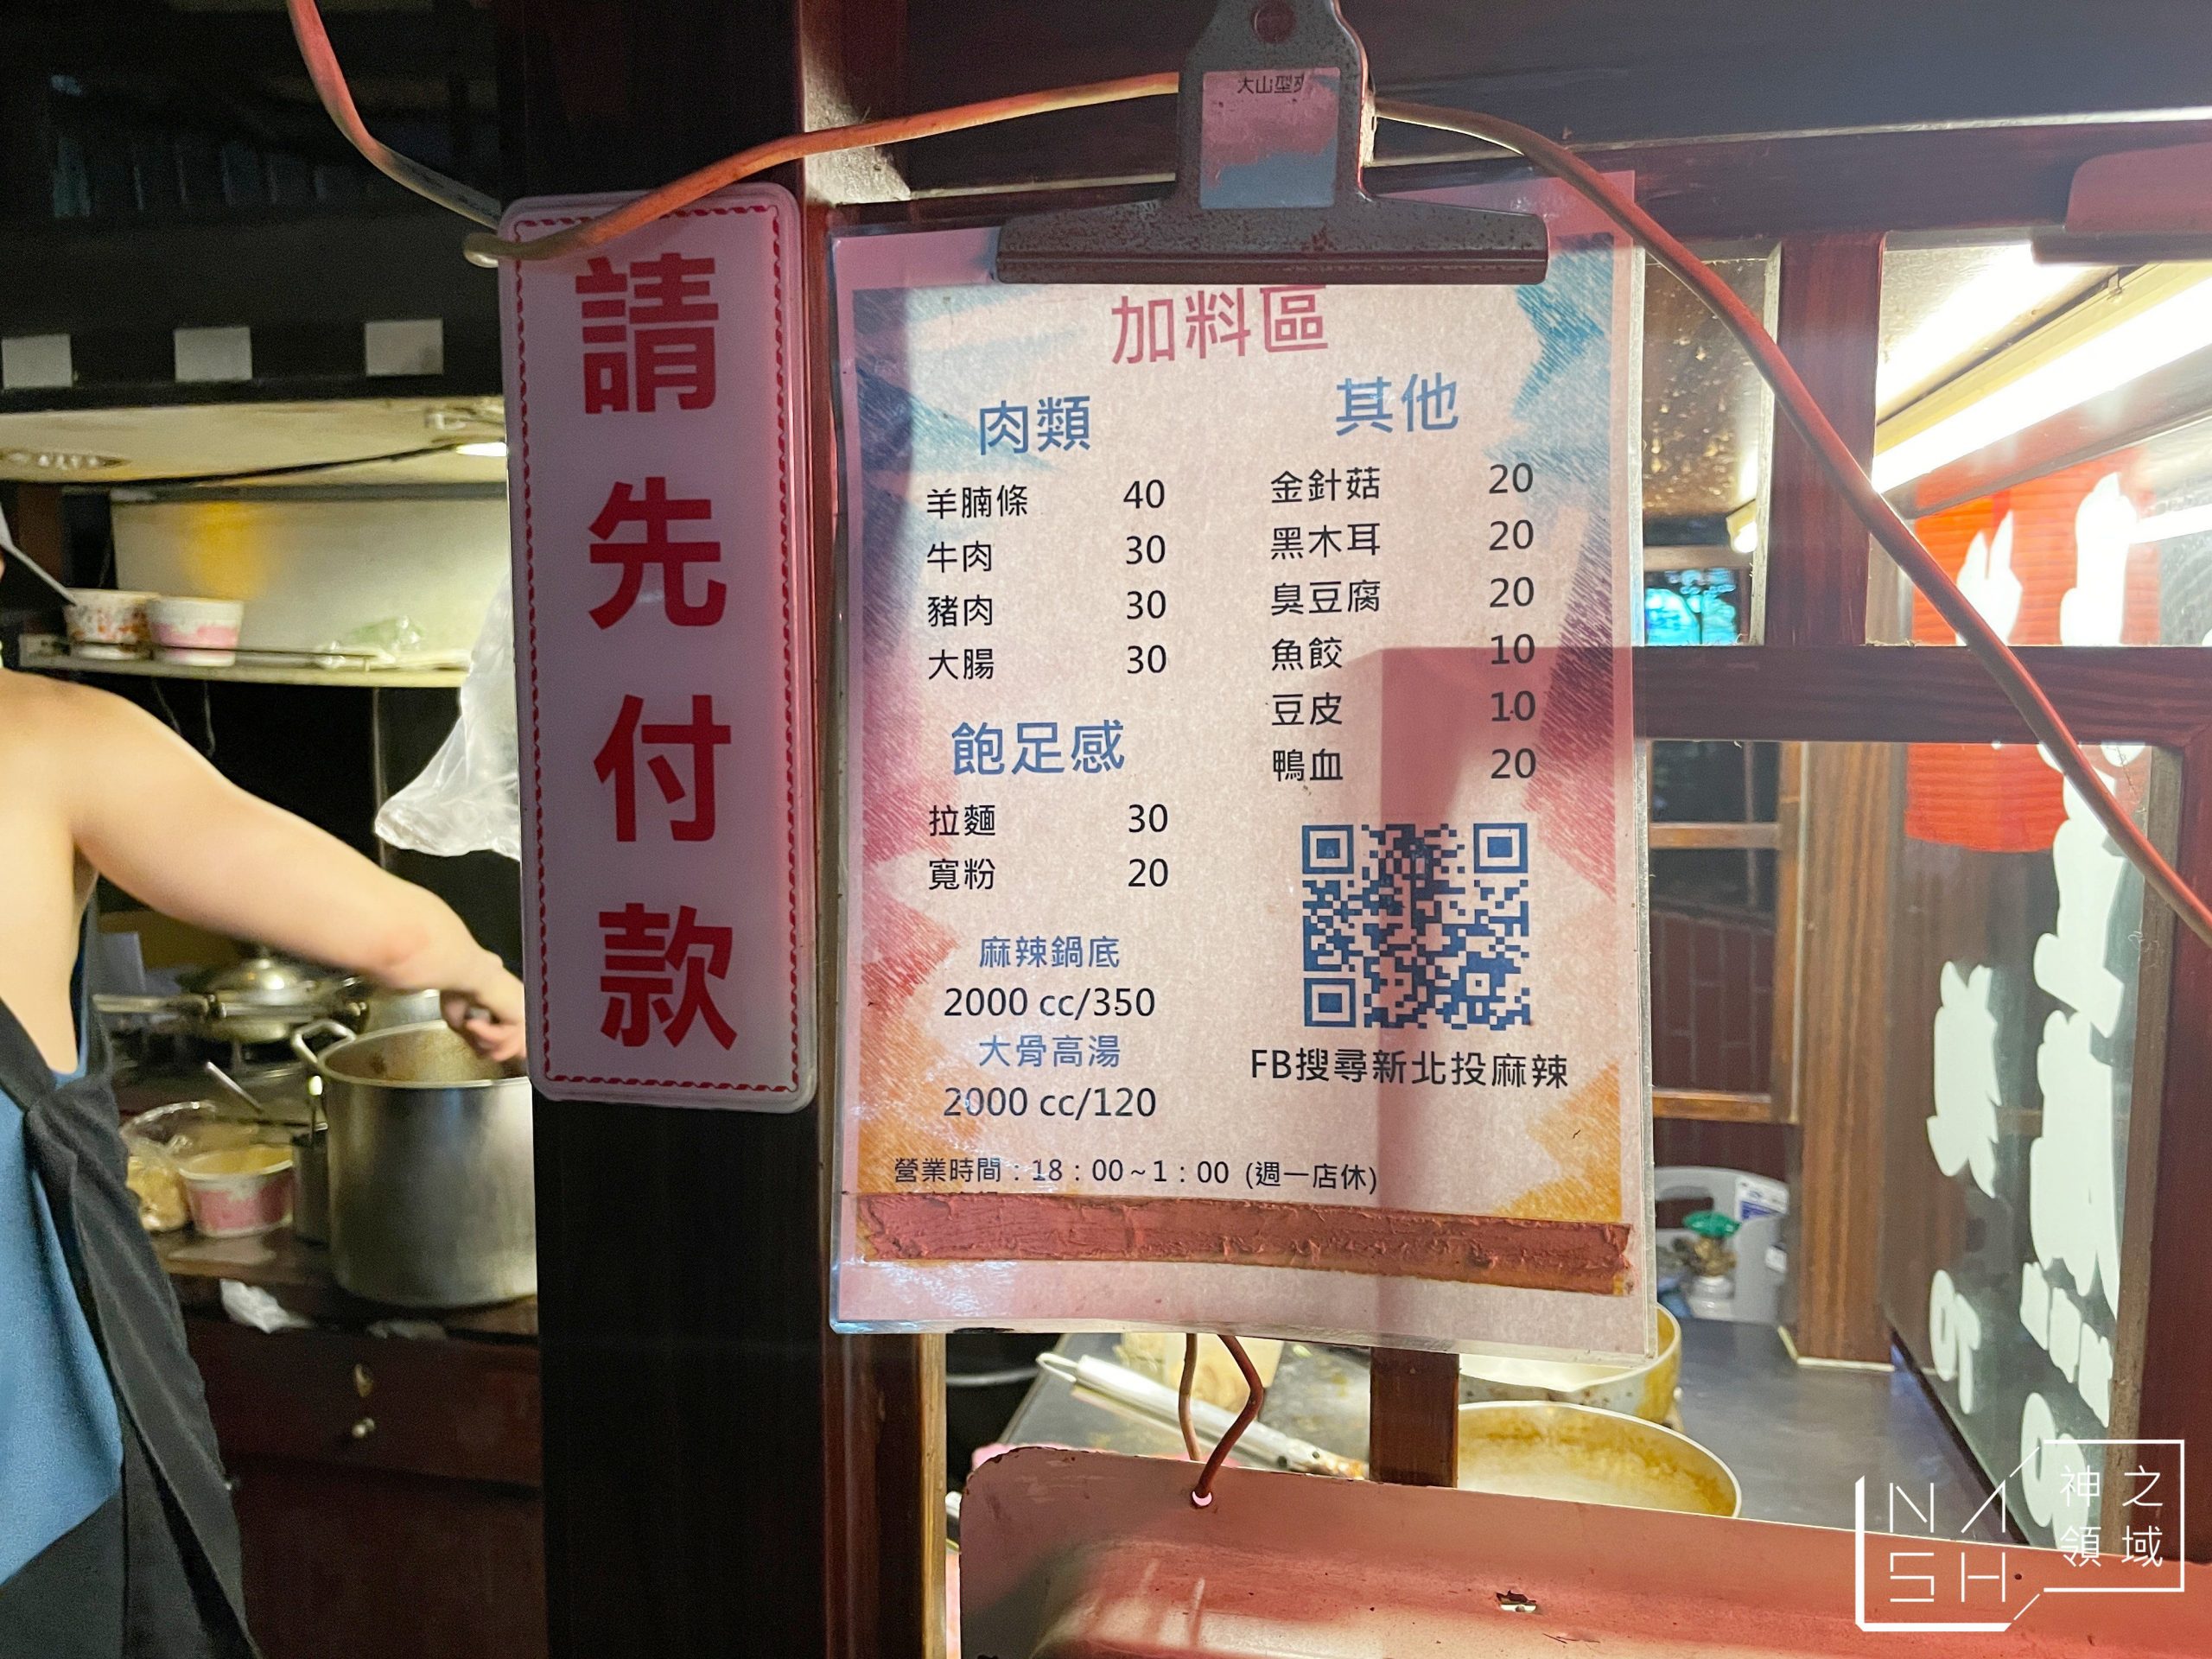 大山型夾
請先付款
加料區
肉類
羊腩條 40
牛肉 30
豬肉 30
大腸 30
飽足感
拉麵 30
寬粉 20
麻辣鍋底
2000 cc/350
大骨高湯
2000 cc/120
其他
金針菇 20
黑木耳 20
臭豆腐 20
魚餃 10
豆皮 10
鴨血 20
FB搜尋新北投麻辣
營業時間：18：00~1：00 (週一店休)
NASH
神之
領域